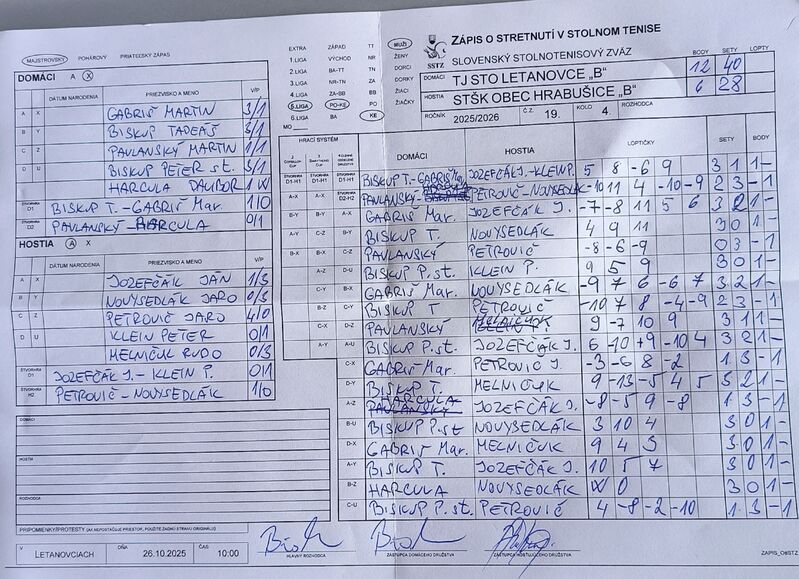 MAJSTROVSKÝ POHÁROVÝ PRIATEĽSKÝ ZÁPAS
DOMÁCI A X
DÁTUM NARODENIA PRIEZVISKO A MENO V/P
A X GABRIŠ MARTIN 3/1
B Y BISKUP TADEÁŠ 3/1
C Z PAVLANSKÝ MARTIN 1/1
D U BISKUP PETER st. 3/1
HARCULA DALIBOR 1 W
ŠTVORHRA D1 BISKUP T. - GABRIŠ Mar. 1/0
ŠTVORHRA D2 PAVLANSKÝ - HARCULA 0/1
HOSTIA A X
DÁTUM NARODENIA PRIEZVISKO A MENO V/P
A X JOZEFČÁK JÁN 1/3
B Y NOVYSEDLÁK JARO 0/3
C Z PETROVIČ JARO 4/0
D U KLEIN PETER 0/1
MELNIČUK RUDO 0/3
ŠTVORHRA D1 JOZEFČÁK J. - KLEIN P. 0/1
ŠTVORHRA H2 PETROVIČ - NOVYSEDLÁK 1/0
DOMÁCI
HOSTIA
ROZHODCA
PRIPOMIENKY/PROTESTY (AK NEPOSTAČUJE PRIESTOR, POUŽITE ZADNÚ STRANU ORIGINÁLU)
V LETANOVCIACH DŇA 26.10.2025 ČAS 10:00
HLAVNÝ ROZHODCA ZÁSTUPCA DOMÁCEHO DRUŽSTVA ZÁSTUPCA HOSŤUJÚCEHO DRUŽSTVA
EXTRA ZÁPAD TT
1.LIGA VÝCHOD NR
2.LIGA BA-TT TN
3.LIGA NR-TN ZA
4.LIGA ZA-BB BB
5.LIGA PO-KE PO
6.LIGA BA KE
MO
MUŽI
ŽENY
DORCI
DORKY
ŽIACI
ŽIAČKY
SSTZ
ZÁPIS O STRETNUTÍ V STOLNOM TENISE
SLOVENSKÝ STOLNOTENISOVÝ ZVÄZ BODY SETY LOPTY
DOMÁCI TJ STO LETANOVCE „B" 12 40
HOSTIA STŠK OBEC HRABUŠICE „B" 6 28
ROČNÍK 2025/2026 Č.Z. 19. KOLO 4. ROZHODCA
HRACÍ SYSTÉM DOMÁCI HOSTIA LOPTIČKY SETY BODY
D1-H1 D1-H1 D1-H1 BISKUP T. - GABRIŠ Mar. JOZEFČÁK J. - KLEIN P. 5 8 -6 9 3 1 1 -
A-X A-X D2-H2 PAVLANSKÝ - HARCULA PETROVIČ - NOVYSEDLÁK -10 11 4 -10 -9 2 3 - 1
B-Y B-Y A-X GABRIŠ Mar. JOZEFČÁK J. -7 -8 11 5 6 3 2 1 -
A-Y C-Z B-Y BISKUP T. NOVYSEDLÁK 4 9 11 3 0 1 -
B-X B-X C-Z PAVLANSKÝ PETROVIČ -8 -6 -9 0 3 - 1
A-Z D-U BISKUP P. st. KLEIN P. 9 5 9 3 0 1 -
C-Y B-X GABRIŠ Mar. NOVYSEDLÁK -9 7 6 -6 7 3 2 1 -
B-Z C-Y BISKUP T PETROVIČ -10 7 8 -4 -9 2 3 - 1
C-X D-Z PAVLANSKÝ MELNIČUK 9 -7 10 9 3 1 1 -
A-Y A-U BISKUP P. st. JOZEFČÁK J. 6 -10 +9 -10 4 3 2 1 -
C-X GABRIŠ Mar. PETROVIČ J. -3 -6 8 -2 1 3 - 1
D-Y BISKUP T. MELNIČUK 9 -13 -5 4 5 3 2 1 -
A-Z HARCULA PAVLANSKÝ JOZEFČÁK J. -8 -5 9 -8 1 3 - 1
B-U BISKUP P. st NOVYSEDLÁK 3 10 4 3 0 1 -
D-X GABRIŠ Mar. MELNIČUK 9 4 3 3 0 1 -
A-Y BISKUP T. JOZEFČÁK J. 10 5 7 3 0 1 -
B-Z HARCULA NOVYSEDLÁK W O 3 0 1 -
C-U BISKUP P. st. PETROVIČ 4 -8 -2 -10 1 3 - 1
ZÁPIS_OSSTZ